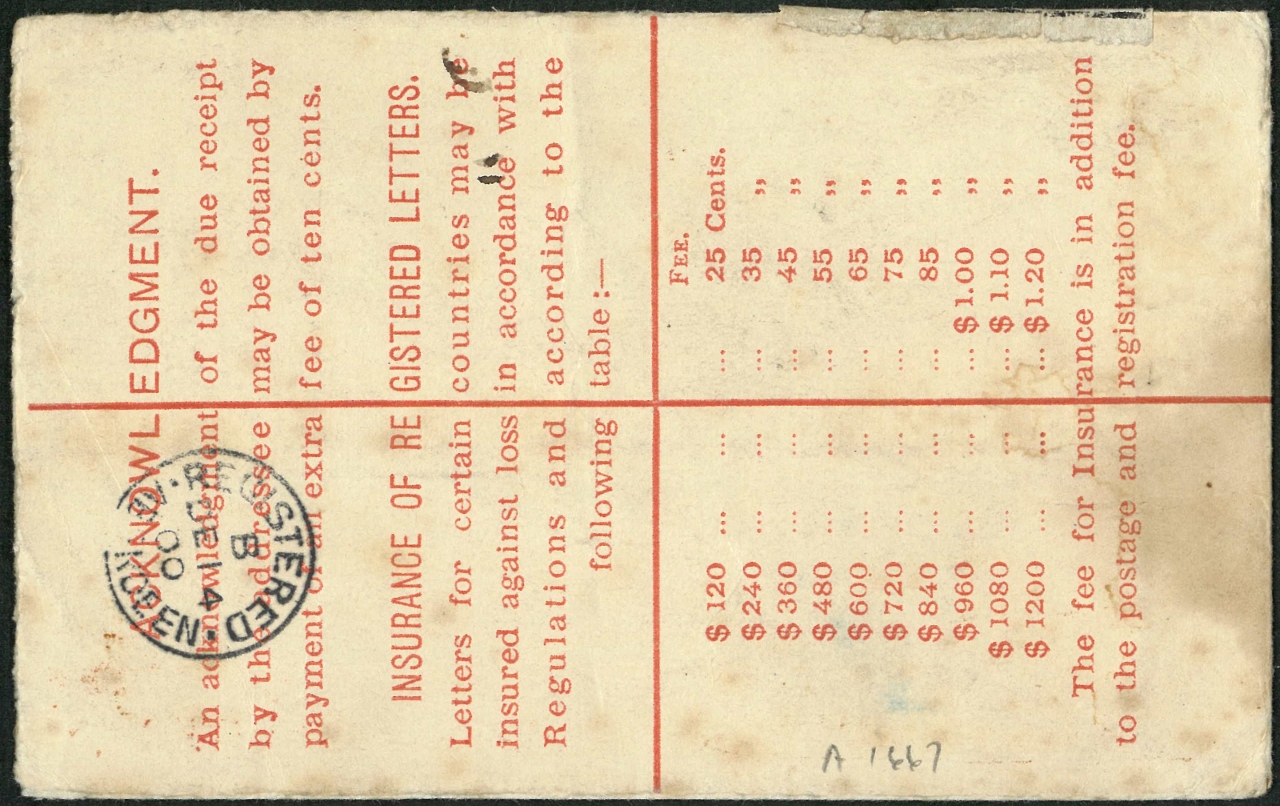 ACKNOWLEDGMENT.
An acknowledgment of the due receipt
by the addressee may be obtained by
payment of an extra fee of ten cents.
INSURANCE OF REGISTERED LETTERS.
Letters for certain countries may be
insured against loss in accordance with
Regulations and according to the
following table:—
FEE.
$ 120 ... ... ... 25 Cents.
$ 240 ... ... ... 35 „
$ 360 ... ... ... 45 „
$ 480 ... ... ... 55 „
$ 600 ... ... ... 65 „
$ 720 ... ... ... 75 „
$ 840 ... ... ... 85 „
$ 960 ... ... ... $ 1.00 „
$ 1080 ... ... ... $ 1.10 „
$ 1200 ... ... ... $ 1.20 „
The fee for Insurance is in addition
to the postage and registration fee.
REGISTERED
B
DE 14
00
A 1667